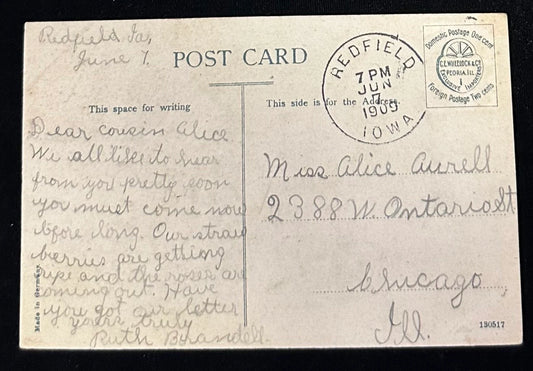 Redfield Ia,
June 7.
POST CARD
REDFIELD
7 PM
JUN
7
1909
IOWA
Domestic Postage One cent
C.E. WHEELOCK & Co
PEORIA, ILL
EXCLUSIVE IMPORTERS
Foreign Postage Two cents
This space for writing
This side is for the Address
Dear cousin Alice
We all like to hear
from you pretty soon
you must come now
bfore long. Our straw
berries are getting
ripe and the roses are
coming out. Have
you got our letter
yours truly
Ruth
Miss Alice Aurell
2388 W. Ontario St
Chicago
Ill.
Made in Germany
130517